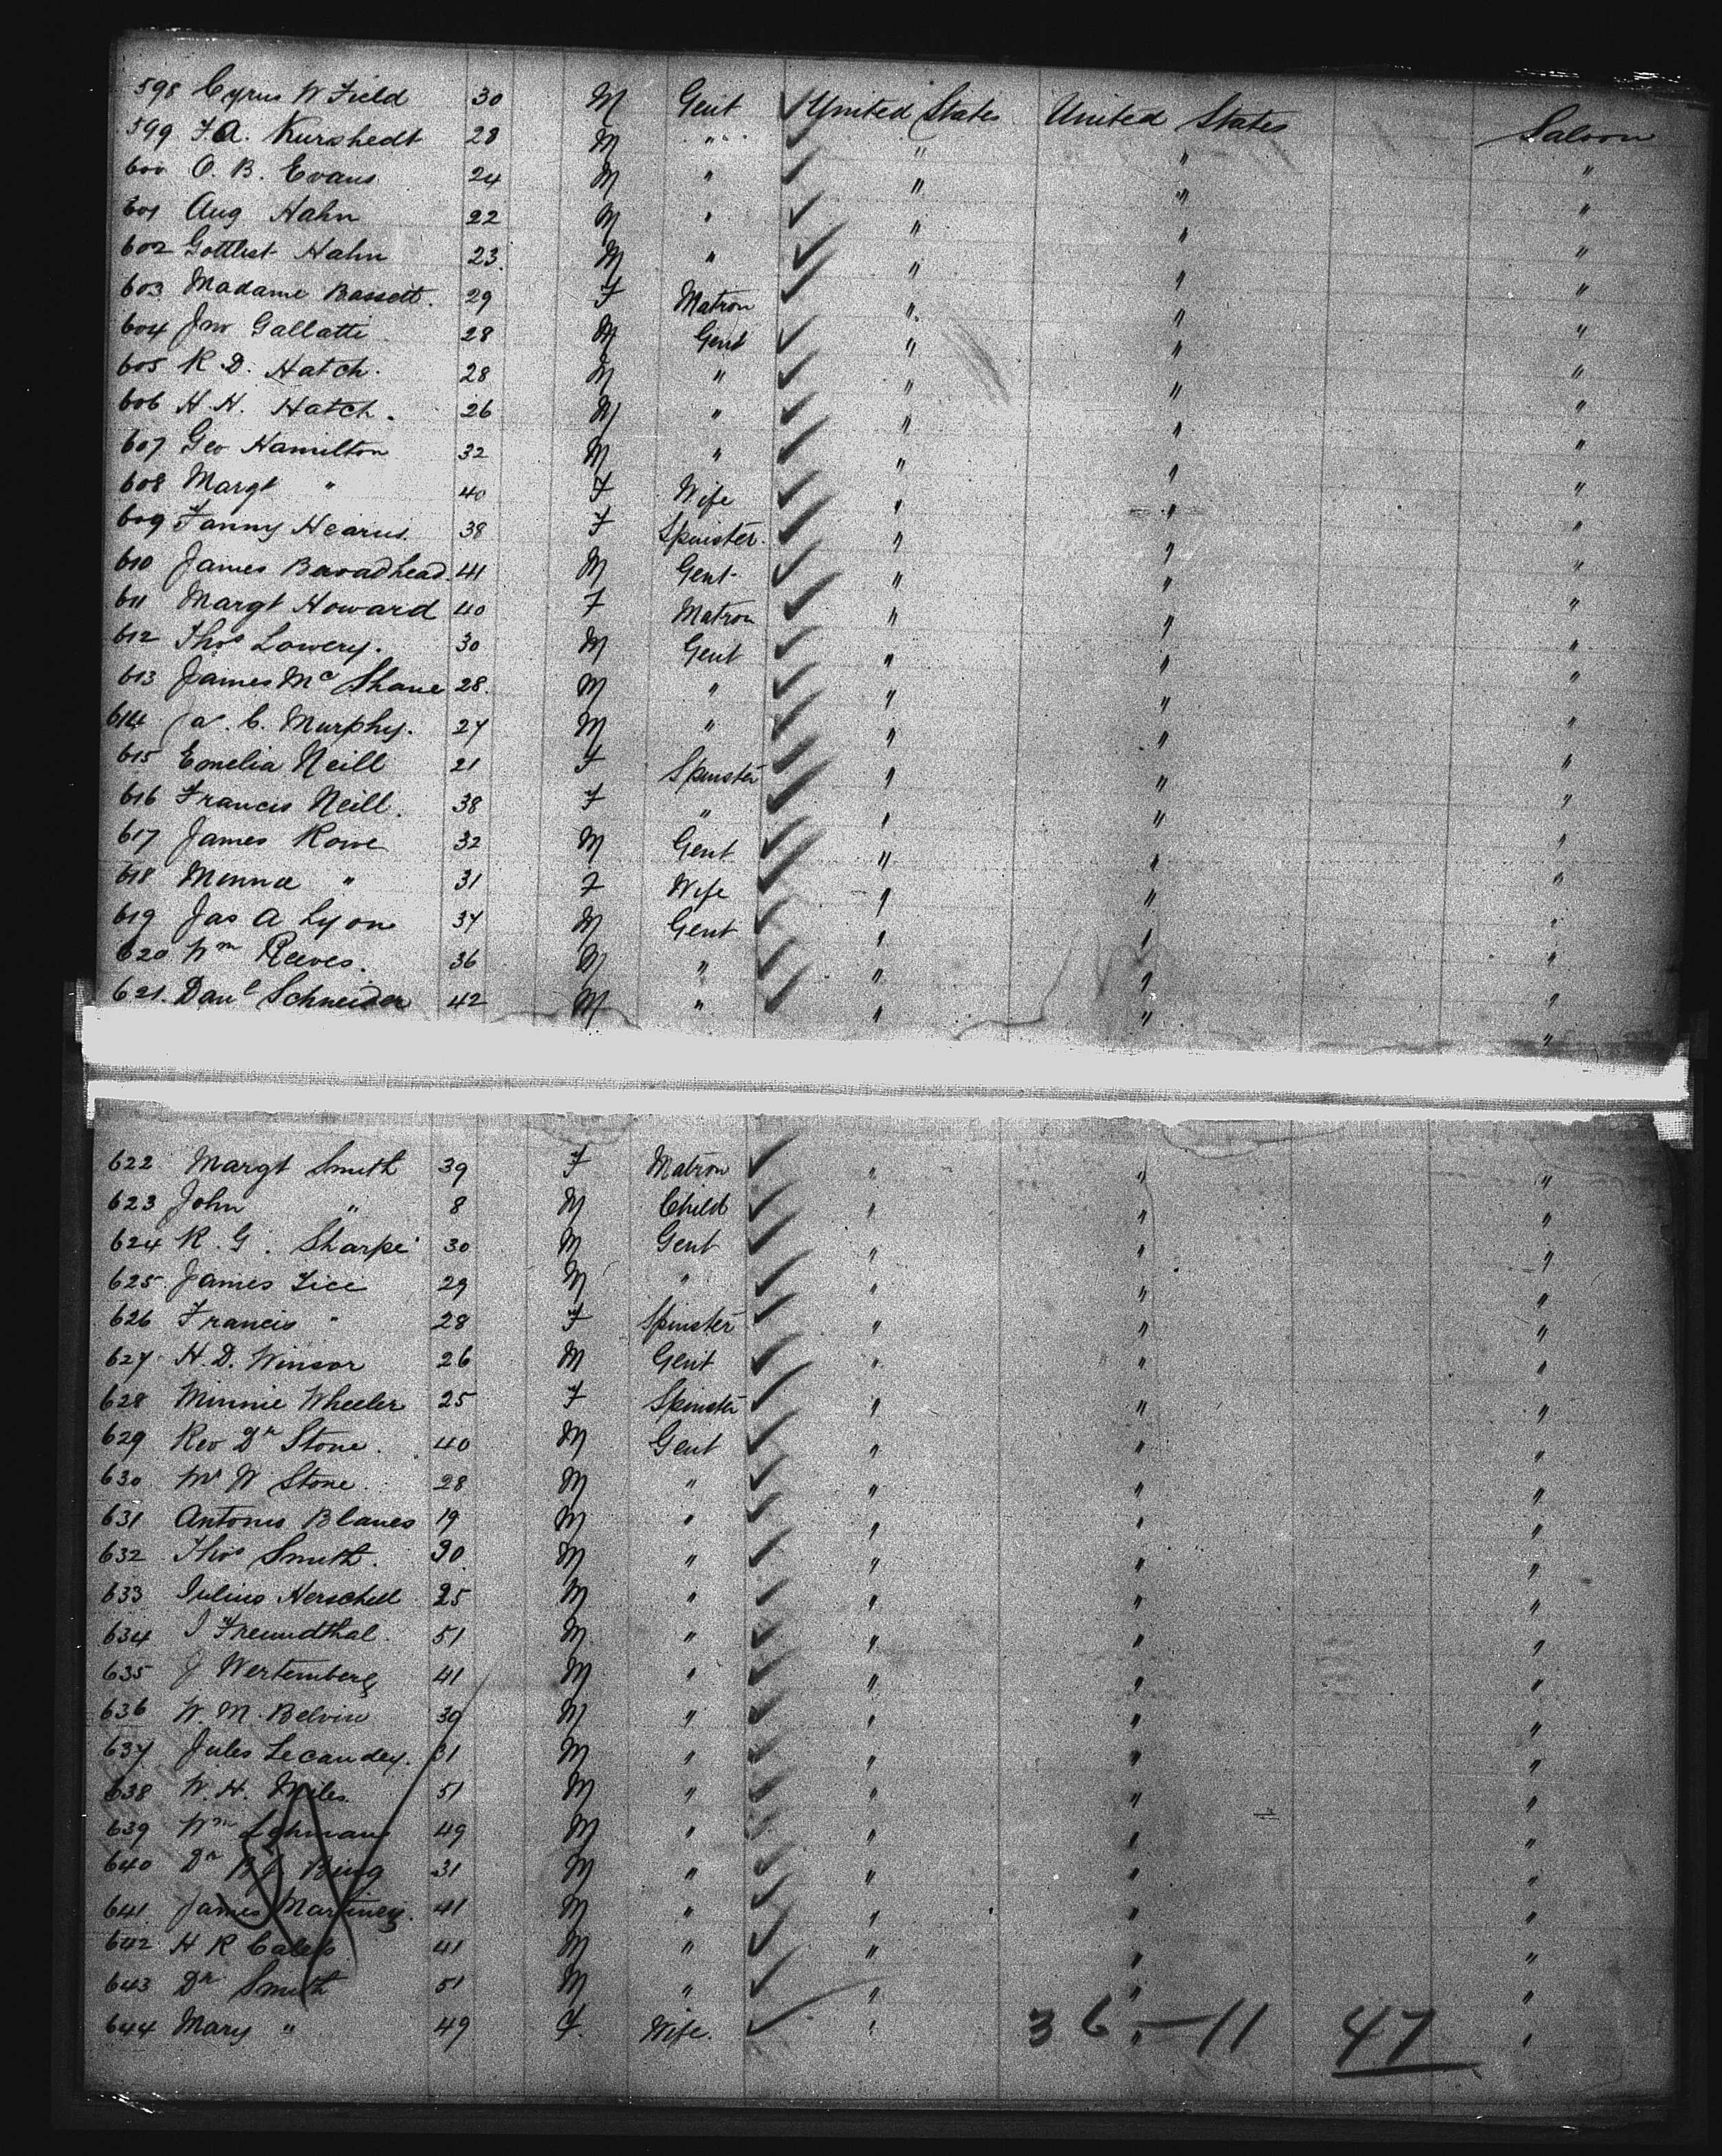 598 Cyrus W Field 30 M Gent United States United States Saloon
599 F.A. Kurshedt 28 M " " " "
600 O. B. Evans 24 M " " " "
601 Aug Hahn 22 M " " " "
602 Gottliest Hahn 23 M " " " "
603 Madame Bassett. 29 F Matron " " "
604 Jno Gallatti 28 M Gent " " "
605 R. D. Hatch. 28 M " " " "
606 H. H. Hatch. 26 M " " " "
607 Geo Hamilton 32 M " " " "
608 Margt " 40 F Wife " " "
609 Fanny Hearns. 38 F Spinster. " " "
610 James Broadhead 41 M Gent " " "
611 Margt Howard 40 F Matron " " "
612 Thos Lowery. 30 M Gent " " "
613 James Mc Shane 28. M " " " "
614 a. C. Murphy. 27 M " " " "
615 Emelia Neill 21 F Spinster " " "
616 Francis Neill. 38 F " " " "
617 James Rowe 32 M Gent " " "
618 Minna " 31 F Wife " " "
619 Jas A Lyon 37 M Gent " " "
620 Wm Reeves. 36 M " " " "
621. Danl Schneider 42 M " " " "
622 Margt Smith 39 F Matron " " "
623 John " 8 M Child " " "
624 R. G. Sharpe 30 M Gent " " "
625 James Tice 29 M " " " "
626 Francis " 28 F Spinster " " "
627 H. D. Winsor 26 M Gent " " "
628 Minnie Wheeler 25 F Spinster " " "
629 Rev Dr Stone. 40 M Gent " " "
630 W Stone. 28 M " " " "
631 Antonio Blanes 19 M " " " "
632 Thos Smith. 30 M " " " "
633 Julius Herschell 25 M " " " "
634 J Freundthal. 51 M " " " "
635 J Wertemberg 41 M " " " "
636 W. M. Belvin 39 M " " " "
637 Jules Lecaudey. 31 M " " " "
638 W. H. Miles. 51 M " " " "
639 Wm Lehman 49 M " " " "
640 Dr Bing 31 M " " " "
641 James Martinez. 41 M " " " "
642 H R Caleb 41 M " " " "
643 Dr Smith 51 M " " " "
644 Mary " 49 F. Wife. " " "
36 — 11 47